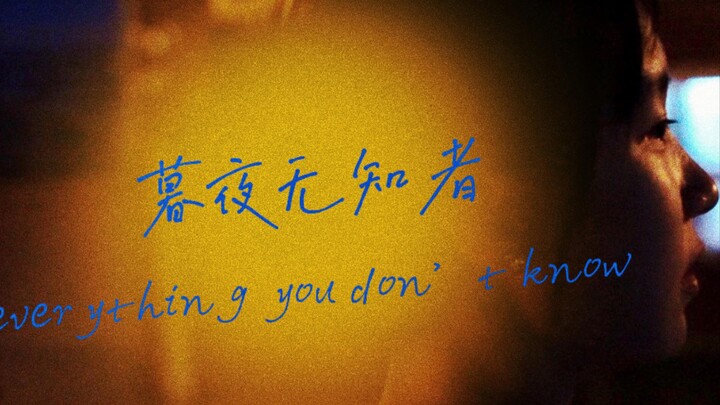 暮夜无知者
everything you don't know